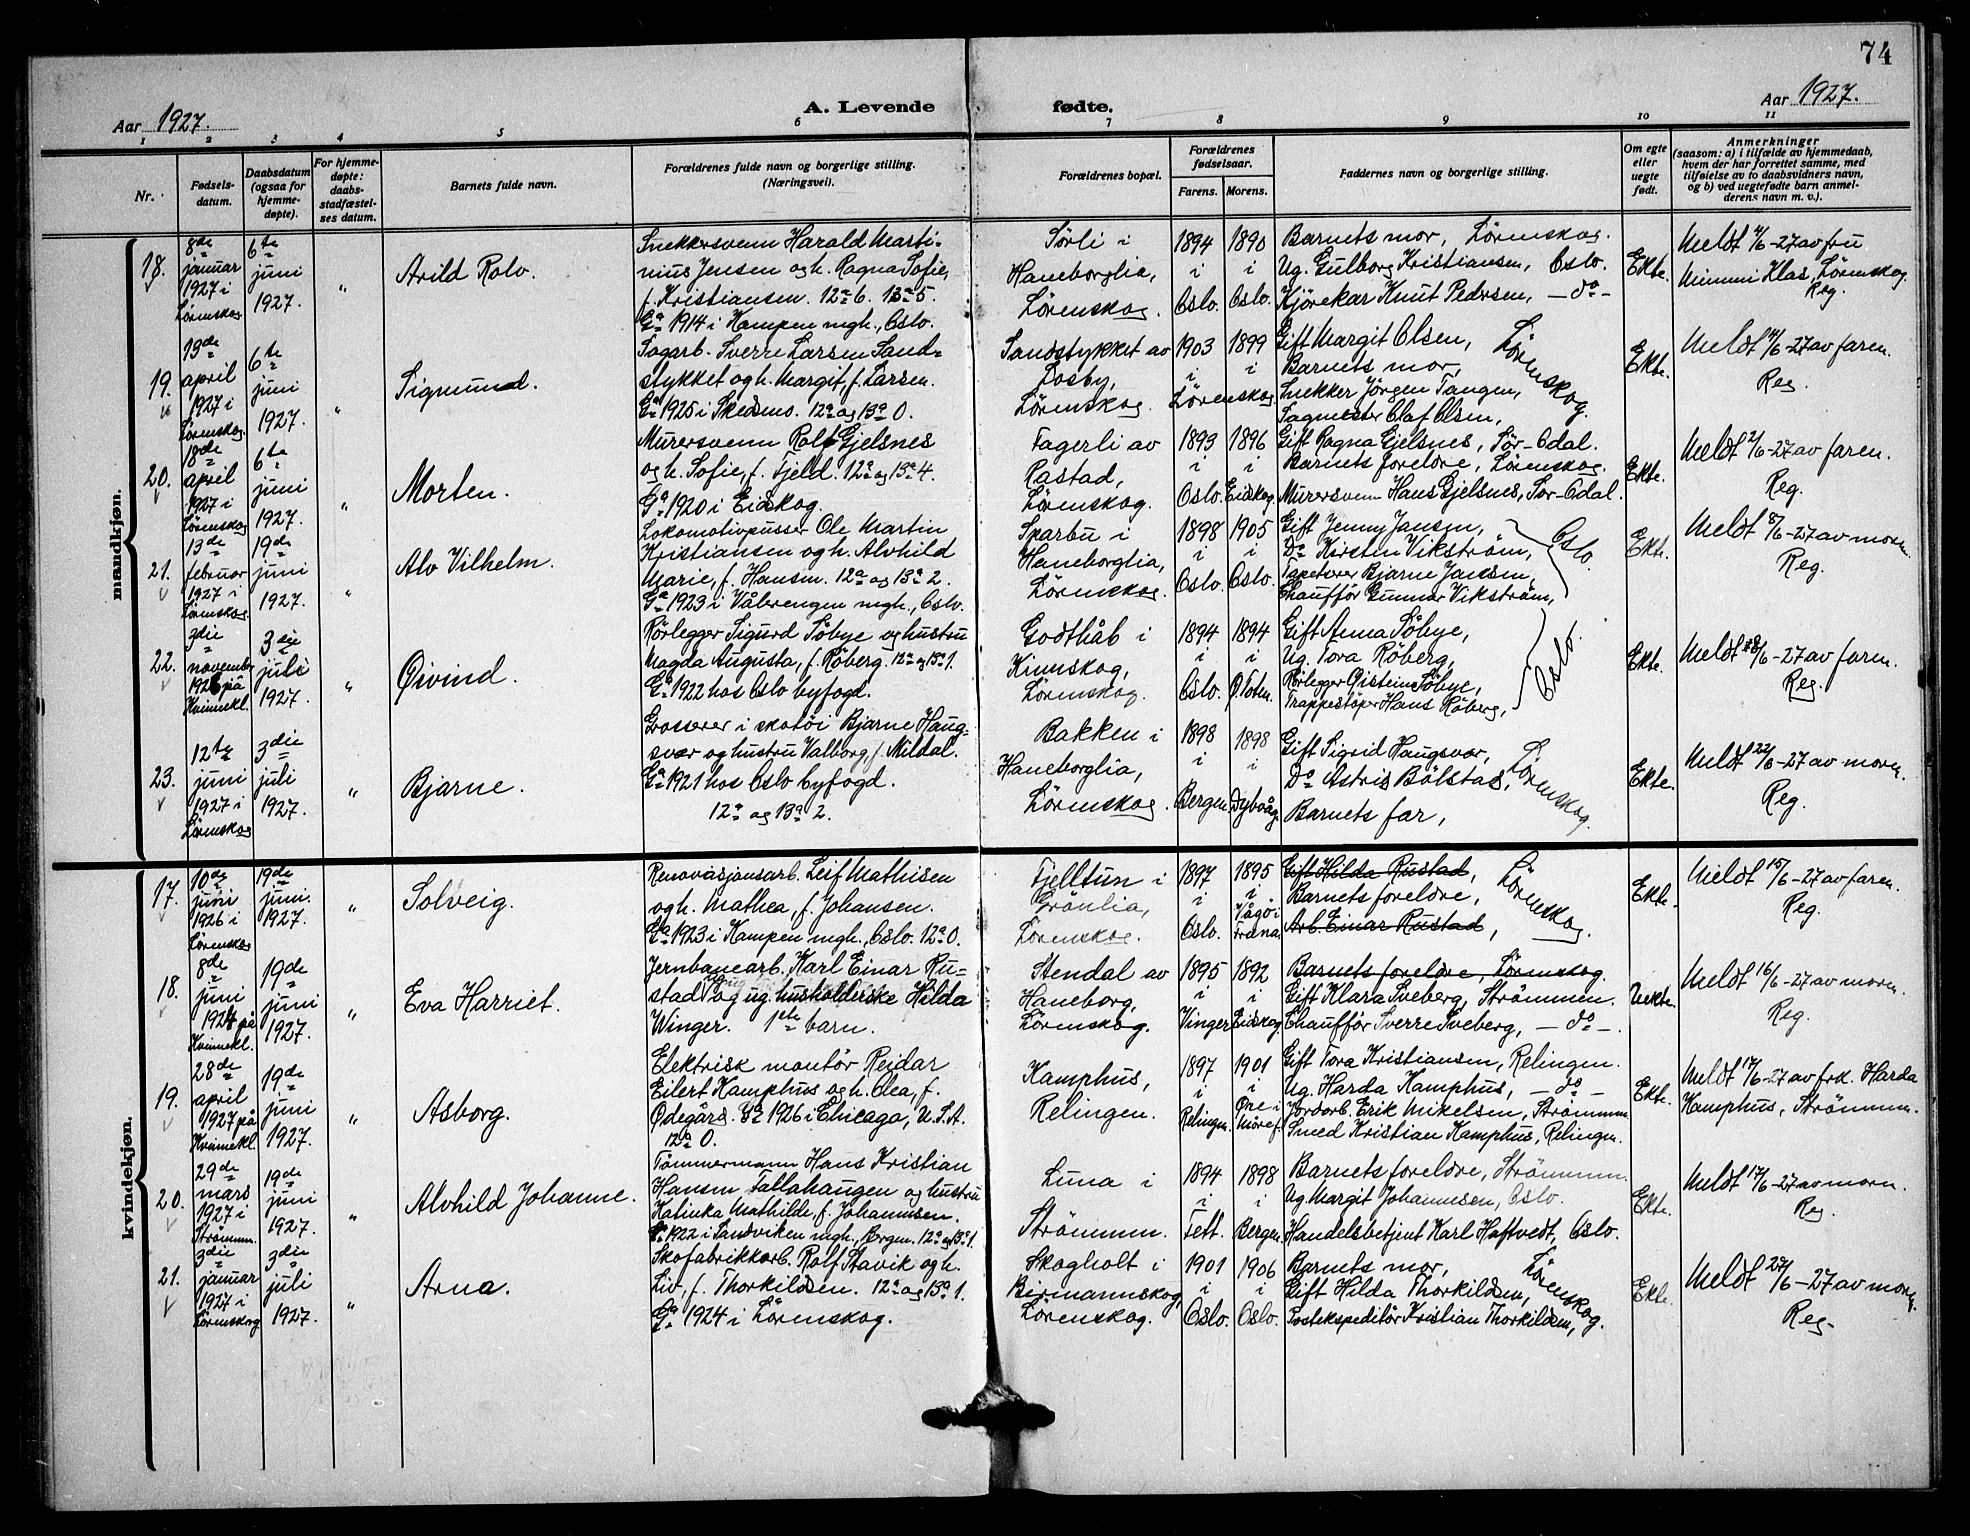 74
Aar 1927.
A. Levende fødte.
Aar 1927.
1 2 3 4 5 6 7 8 9 10 11
Nr.
Fødsels-
datum.
Daabsdatum
(ogsaa for
hjemme-
døpte).
For hjemme-
døpte:
daabs-
stadfæstel-
ses datum.
Barnets fulde navn.
Forældrenes fulde navn og borgerlige stilling.
(Næringsvei).
Forældrenes bopæl.
Forældrenes
fødselsaar.
Farens. Morens.
Faddernes navn og borgerlige stilling.
Om egte
eller
uegte
født.
Anmerkninger
(saasom: a) i tilfælde av hjemmedaab,
hvem der har forrettet samme, med
tilføielse av to daabsvidners navn,
og b) ved uegtefødte barn anmel-
derens navn m. v.).
mandkjøn.
18.
8de
januar
1927 i
Lörenskog
6te
juni
1927.
"
Arild Rolv.
Snekkersvenn Harald Marti-
nius Jensen og h. Ragna Sofie,
f. Kristiansen. 12a 6. 13a 5.
Ga 1914 i Kampen mgh., Oslo.
Sörli i
Haneborglia,
Lörenskog.
1894
i
Oslo.
1890
i
Oslo.
Barnets mor, Lörenskog.
Ug. Gulborg Kristiansen, Oslo.
Kjörekar Knut Pedersen, — do —
Ekte.
Meldt 4/6-27 av fru
Mimmi Klas, Lörenskog.
Reg.
19.
19de
april
1927 i
Lörenskog.
6te
juni
1927.
"
Sigmund.
Sagarb. Sverre Larsen Sand-
stykket og h. Margit, f. Larsen.
Ga 1925 i Skedsmo. 12a og 13a 0.
Sandstykket av
Losby,
Lörenskog.
1903 1899
i i
Lörenskog.
Gift Margit Olsen,
Barnets mor,
Snekker Jörgen Tangen,
Sagmester Olaf Olsen,
Lörenskog.
Ekte.
Meldt 14/6-27 av faren.
Reg.
20.
18de
april
1927 i
Lörenskog
6te
juni
1927.
"
Morten.
Murersvenn Rolf Gjelsnes
og h. Sofie, f. Fjeld. 12a og 13a 4.
Ga 1920 i Eidskog.
Fagerli av
Rastad,
Lörenskog.
1893
i
Oslo.
1896
i
Eidskog.
Gift Ragna Gjelsnes, Sör-Odal.
Barnets foreldre, Lörenskog.
Murersvenn Hans Gjelsnes, Sör-Odal.
Ekte.
Meldt 2/6-27 av faren.
Reg.
21.
13de
februar
1927 i
Lörenskog
19de
juni
1927.
"
Alv Vilhelm.
Lokomotivpusser Ole Martin
Kristiansen og h. Alvhild
Marie, f. Hansen. 12a og 13a 2.
Ga 1923 i Vålerengen mgh., Oslo.
Sparbu i
Haneborglia,
Lörenskog.
1898
i
Oslo.
1905
i
Oslo.
Gift Jenny Jansen,
Do Kirsten Vikström,
Tapetserer Bjarne Jansen,
Chaufför Gunnar Vikström,
Oslo.
Ekte.
Meldt 8/6-27 av moren.
Reg.
22.
3die
november
1926 på
Kvinnekl.
3die
juli
1927.
"
Öivind.
Rörlegger Sigurd Söbye og hustru
Magda Augusta, f. Röberg. 12a og 13a 1.
Ga 1922 hos Oslo byfogd.
Godthåb i
Kinnskog,
Lörenskog.
1894
i
Oslo.
1894
i
Ö. Toten.
Gift Anna Söbye,
Ug. Tora Röberg,
Rörlegger Öistein Söbye,
Trappestöper Hans Röberg,
Oslo.
Ekte.
Meldt 18/6-27 av faren.
Reg.
23.
12te
juni
1927 i
Lörenskog
3die
juli
1927.
"
Bjarne.
Grosserer i skotöi Bjarne Haug-
svær og hustru Valborg f. Mildal.
Ga 1921 hos Oslo byfogd.
12a og 13a 2.
Bakken i
Haneborglia,
Lörenskog.
1898
i
Bergen.
1898
i
Dybvåg.
Gift Sigrid Haugsvær,
Do Astrid Bölstad,
Barnets far,
Lörenskog.
Ekte.
Meldt 22/6-27 av moren.
Reg.
kvindekjøn.
17.
10de
juni
1926 i
Lörenskog
19de
juni.
1927.
"
Solveig.
Renovasjonsarb. Leif Mathisen
og h. Mathea, f. Johansen.
Ga 1923 i Kampen mgh., Oslo. 12a 0.
Fjelltun i
Grönlia,
Lörenskog.
1897
i
Oslo.
1895
i
Vågö i
Fræna
Gift Hilda Rustad,
Barnets foreldre,
Arb. Einar Rustad,
Lörenskog.
Ekte.
Meldt 15/6-27 av faren.
Reg.
18.
8de
juni
1924 på
Kvinnekl.
19de
juni
1927.
"
Eva Harriet.
Jernbanearb. Karl Einar Ru-
stad og ug. husholderske Hilda
Winger. 1ste barn.
Stendal av
Haneborg,
Lörenskog.
1895
i
Vinger
1892
i
Eidskog.
Barnets foreldre, Lörenskog.
Gift Klara Sveberg, Strömmen.
Chaufför Sverre Sveberg, — do —.
Uekte.
Meldt 16/6-27 av moren.
Reg.
19.
28de
april
1927 på
Kvinnekl.
19de
juni
1927.
"
Asborg.
Elektrisk montör Reidar
Eilert Kamphus og h. Olea, f.
Ödegård. Ga 1926 i Chicago, U.S.A.
12a 0.
Kamphus,
Relingen.
1897
i
Relingen.
1901
i
Öre i
Möre f.
Gift Tora Kristiansen, Relingen.
Ug. Harda Kamphus, — do —
Jordarb. Erik Mikelsen, Strömmen.
Smed Kristian Kamphus, Relingen.
Ekte.
Meldt 17/6-27 av frk. Harda
Kamphus, Strömmen.
20.
29de
mars
1927 i
Strömmen.
19de
juni
1927.
"
Alvhild Johanne.
Tömmermann Hans Kristian
Hansen Tallahaugen og hustru
Katinka Mathilde, f. Johannesen.
Ga 1922 i Sandviken mgh., Bergen. 12a og 13a 1.
Luna i
Strömmen.
1894
i
Fett.
1898
i
Bergen.
Barnets foreldre, Strömmen.
Ug. Margit Johannesen, Oslo.
Handelsbetjent Karl Haftvedt, Oslo.
Ekte.
Meldt 17/6-27 av moren.
Reg.
21.
3die
januar
1927 i
Lörenskog
3die
juli
1927.
"
Arna.
Skofabrikkarb. Rolf Stavik og h.
Liv, f. Thorkildsen. 12a og 13a 1.
Ga 1924 i Lörenskog.
Skogholt i
Bjermannskog,
Lörenskog.
1901
i
Oslo.
1906
i
Oslo.
Barnets mor,
Gift Hilda Thorkildsen,
Postekspeditör Kristian Thorkildsen,
Lörenskog.
Ekte.
Meldt 27/6-27 av moren.
Reg.